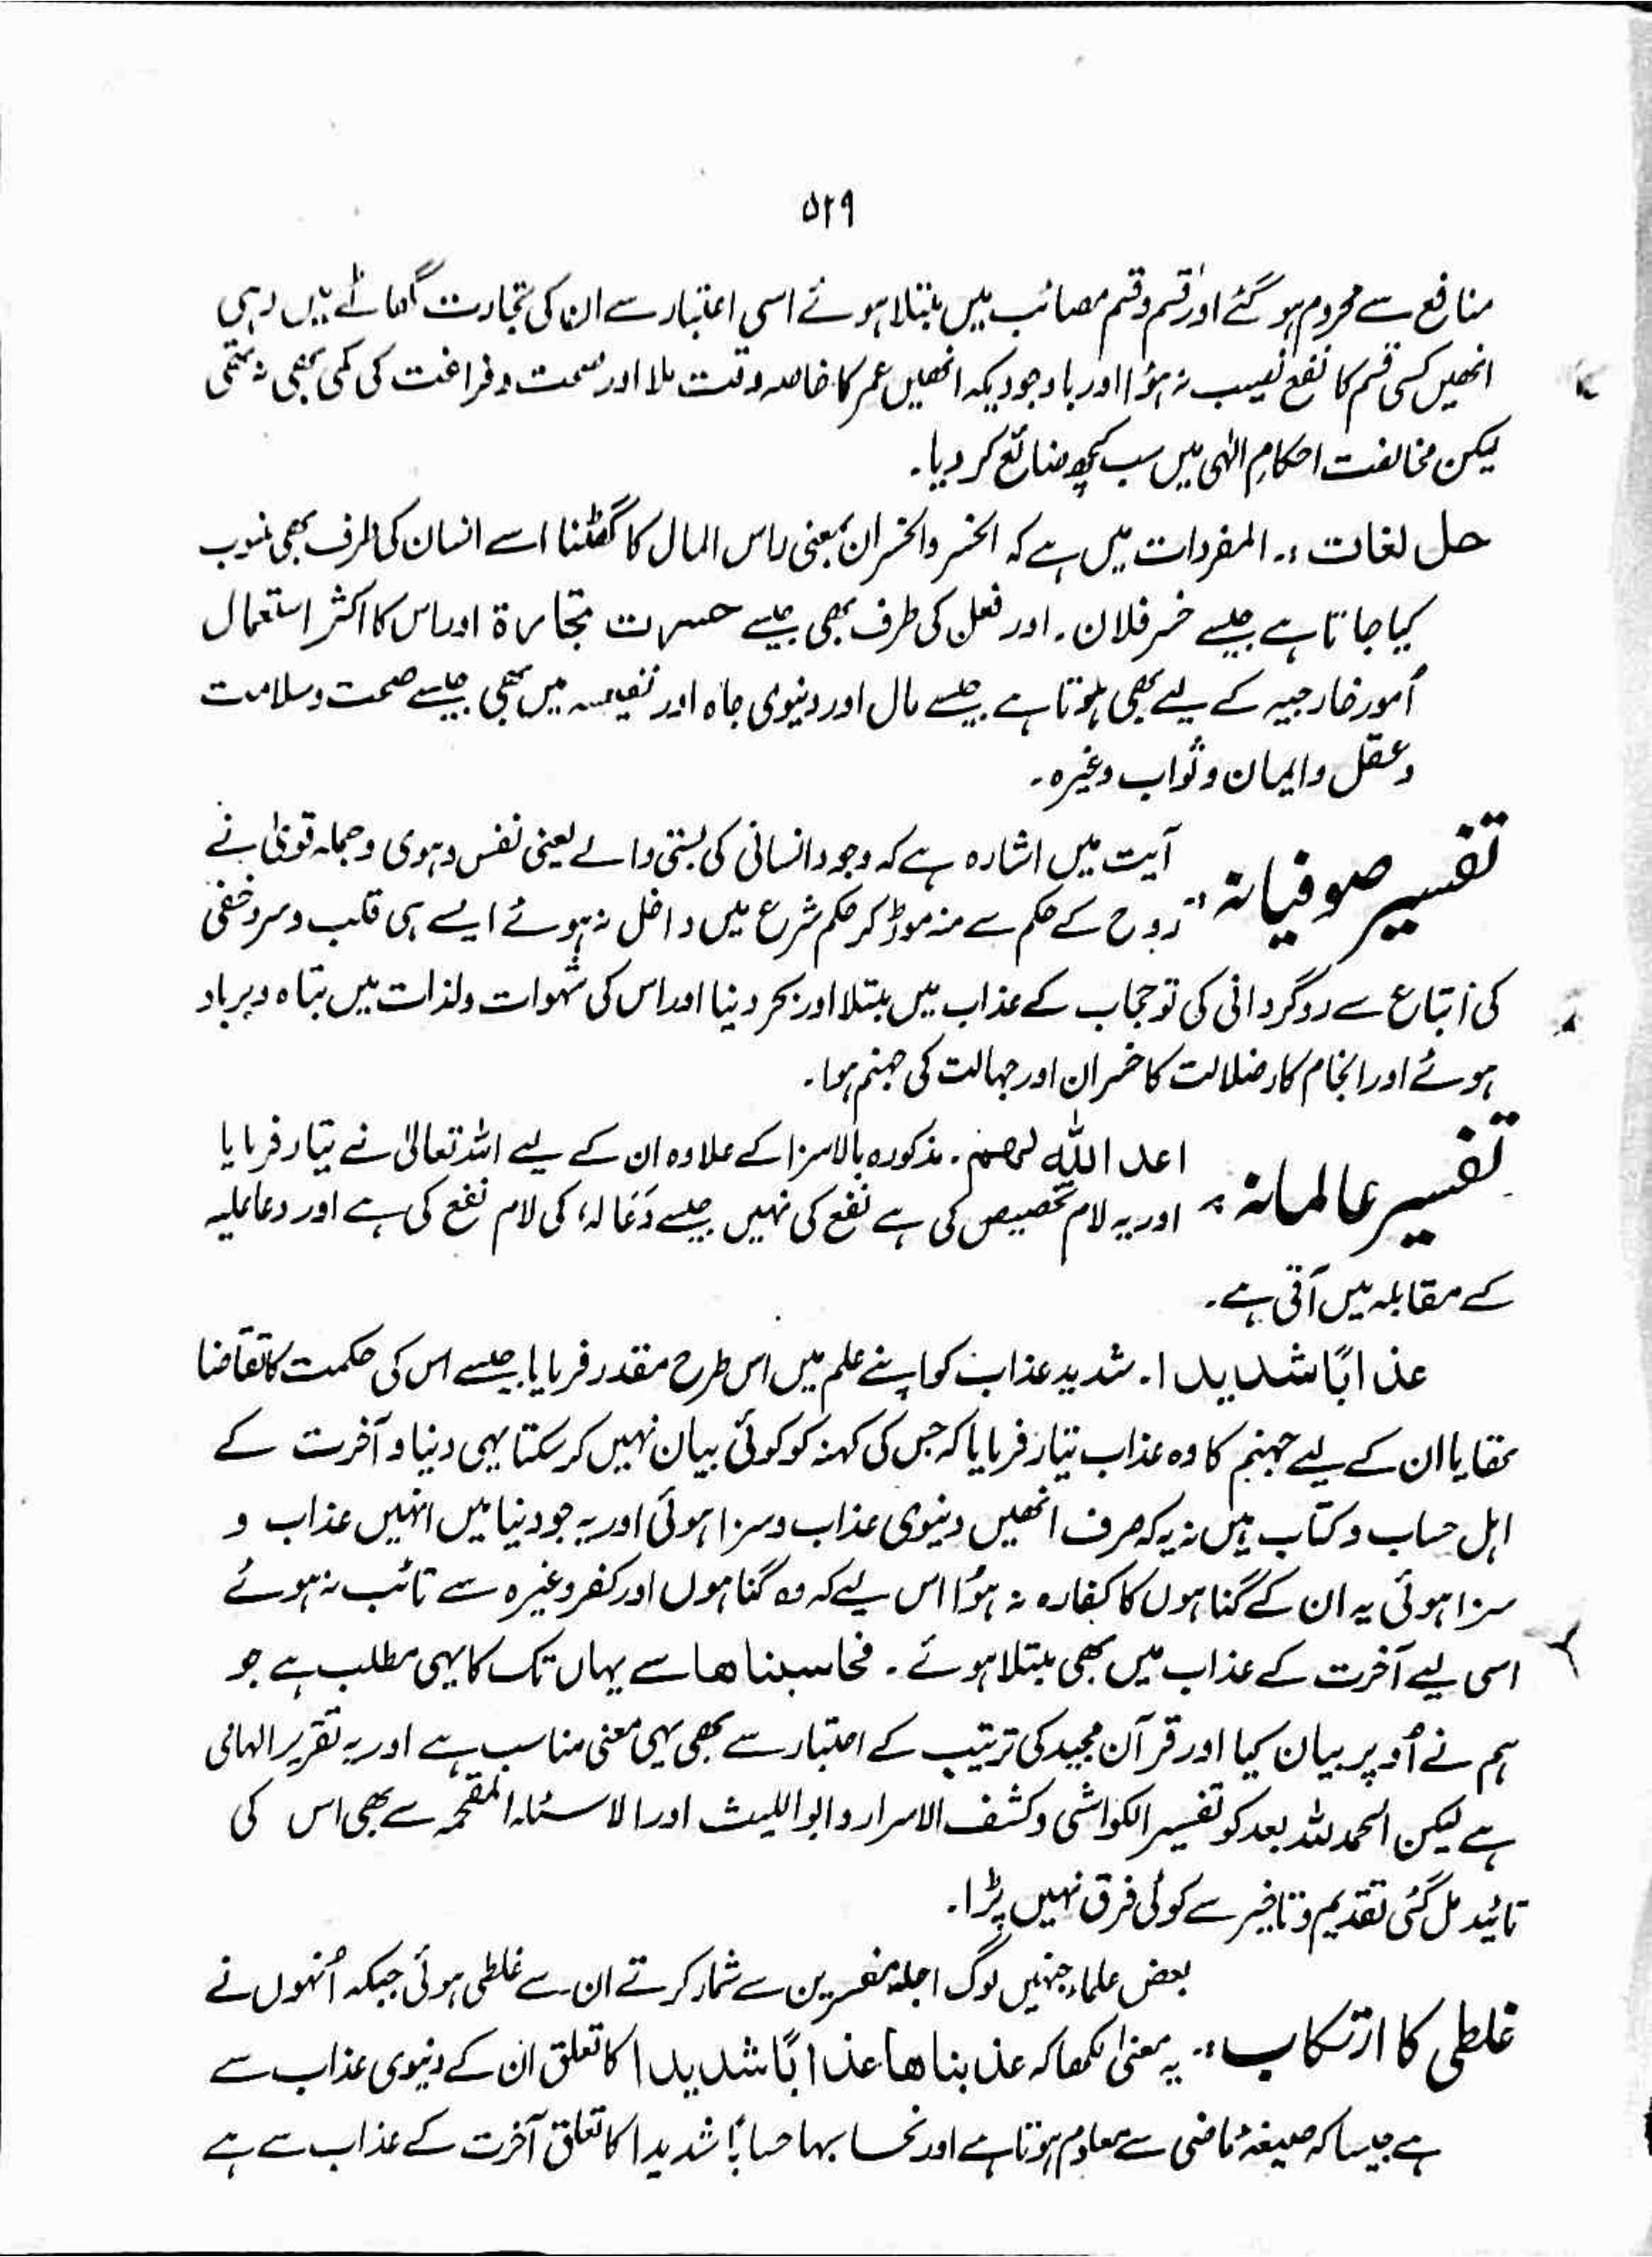 ۵۲۹
منافع سے محروم ہو گئے اور قسم و قسم مصائب میں مبتلا ہوئے اسی اعتبار سے ان کی تجارت گھاٹے میں رہی
انھیں کسی قسم کا نفع نصیب نہ ہؤا اور باوجودیکہ انھیں عمر کا خاصہ وقت ملا اور صحت و فراغت کی کمی بھی نہ تھی
لیکن مخالفت احکامِ الٰہی میں سب کچھ ضائع کر دیا۔
حل لغات :۔ المفردات میں ہے کہ الخسر والخسران بمعنی راس المال کا گھٹنا اسے انسان کی طرف بھی منسوب
کیا جاتا ہے جیسے خسر فلان۔ اور فعل کی طرف بھی جیسے خسرت تجارة اور اس کا اکثر استعمال
اُمور خارجیہ کے لیے بھی ہوتا ہے جیسے مال اور دنیوی جاہ اور نفیسہ میں بھی جیسے صحت و سلامت
و عقل و ایمان و ثواب وغیرہ۔
تفسیر صوفیانہ :۔ آیت میں اشارہ ہے کہ وجود انسانی کی بستی والے یعنی نفس و ہوی و جملہ قویٰ نے
روح کے حکم سے منہ موڑ کر حکم شرع میں داخل نہ ہوئے ایسے ہی قلب و سر و خفی
کی اتباع سے روگردانی کی تو حجاب کے عذاب میں مبتلا اور بحر دنیا اور اس کی شہوات و لذات میں تباہ و برباد
ہوئے اور انجام کار ضلالت کا خسران اور جہالت کی جہنم ہوا۔
تفسیر عالمانہ :۔ اعد اللّٰہ لھم۔ مذکورہ بالا سزا کے علاوہ ان کے لیے اللہ تعالیٰ نے تیار فرمایا
اور یہ لام تخصیص کی ہے نفع کی نہیں جیسے دَعَا لہ، کی لام نفع کی ہے اور دعا علیہ
کے مقابلہ میں آتی ہے۔
عذابًا شدیدا۔ شدید عذاب کو اپنے علم میں اس طرح مقدر فرمایا جیسے اس کی حکمت کا تقاضا
تھا یا ان کے لیے جہنم کا وہ عذاب تیار فرمایا کہ جس کی کہنہ کو کوئی بیان نہیں کر سکتا یہی دنیا و آخرت کے
اہل حساب و کتاب ہیں نہ یہ کہ صرف انھیں دنیوی عذاب و سزا ہوئی اور یہ جو دنیا میں انہیں عذاب و
سزا ہوئی یہ ان کے گناہوں کا کفارہ نہ ہؤا اس لیے کہ وہ گناہوں اور کفر وغیرہ سے تائب نہ ہوئے
اسی لیے آخرت کے عذاب میں بھی مبتلا ہوئے۔ فحاسبناھا سے یہاں تک کا یہی مطلب ہے جو
ہم نے اُوپر بیان کیا اور قرآن مجید کی ترتیب کے اعتبار سے بھی یہی معنی مناسب ہے اور یہ تقریر الہامی
ہے لیکن الحمد للہ بعد کو تفسیر الکواشی و کشف الاسرار و ابو اللیث اور الاسئلہ المقحمہ سے بھی اس کی
تائید مل گئی تقدیم و تاخیر سے کوئی فرق نہیں پڑا۔
غلطی کا ارتکاب :۔ بعض علماء جنہیں لوگ اجلہ مفسرین سے شمار کرتے ان سے غلطی ہوئی جبکہ اُنہوں نے
یہ معنیٰ لکھا کہ عذبناھا عذابًا شدیدا کا تعلق ان کے دنیوی عذاب سے
ہے جیسا کہ صیغۂ ماضی سے معلوم ہوتا ہے اور نحاسبہا حسابًا شدیدا کا تعلق آخرت کے عذاب سے ہے